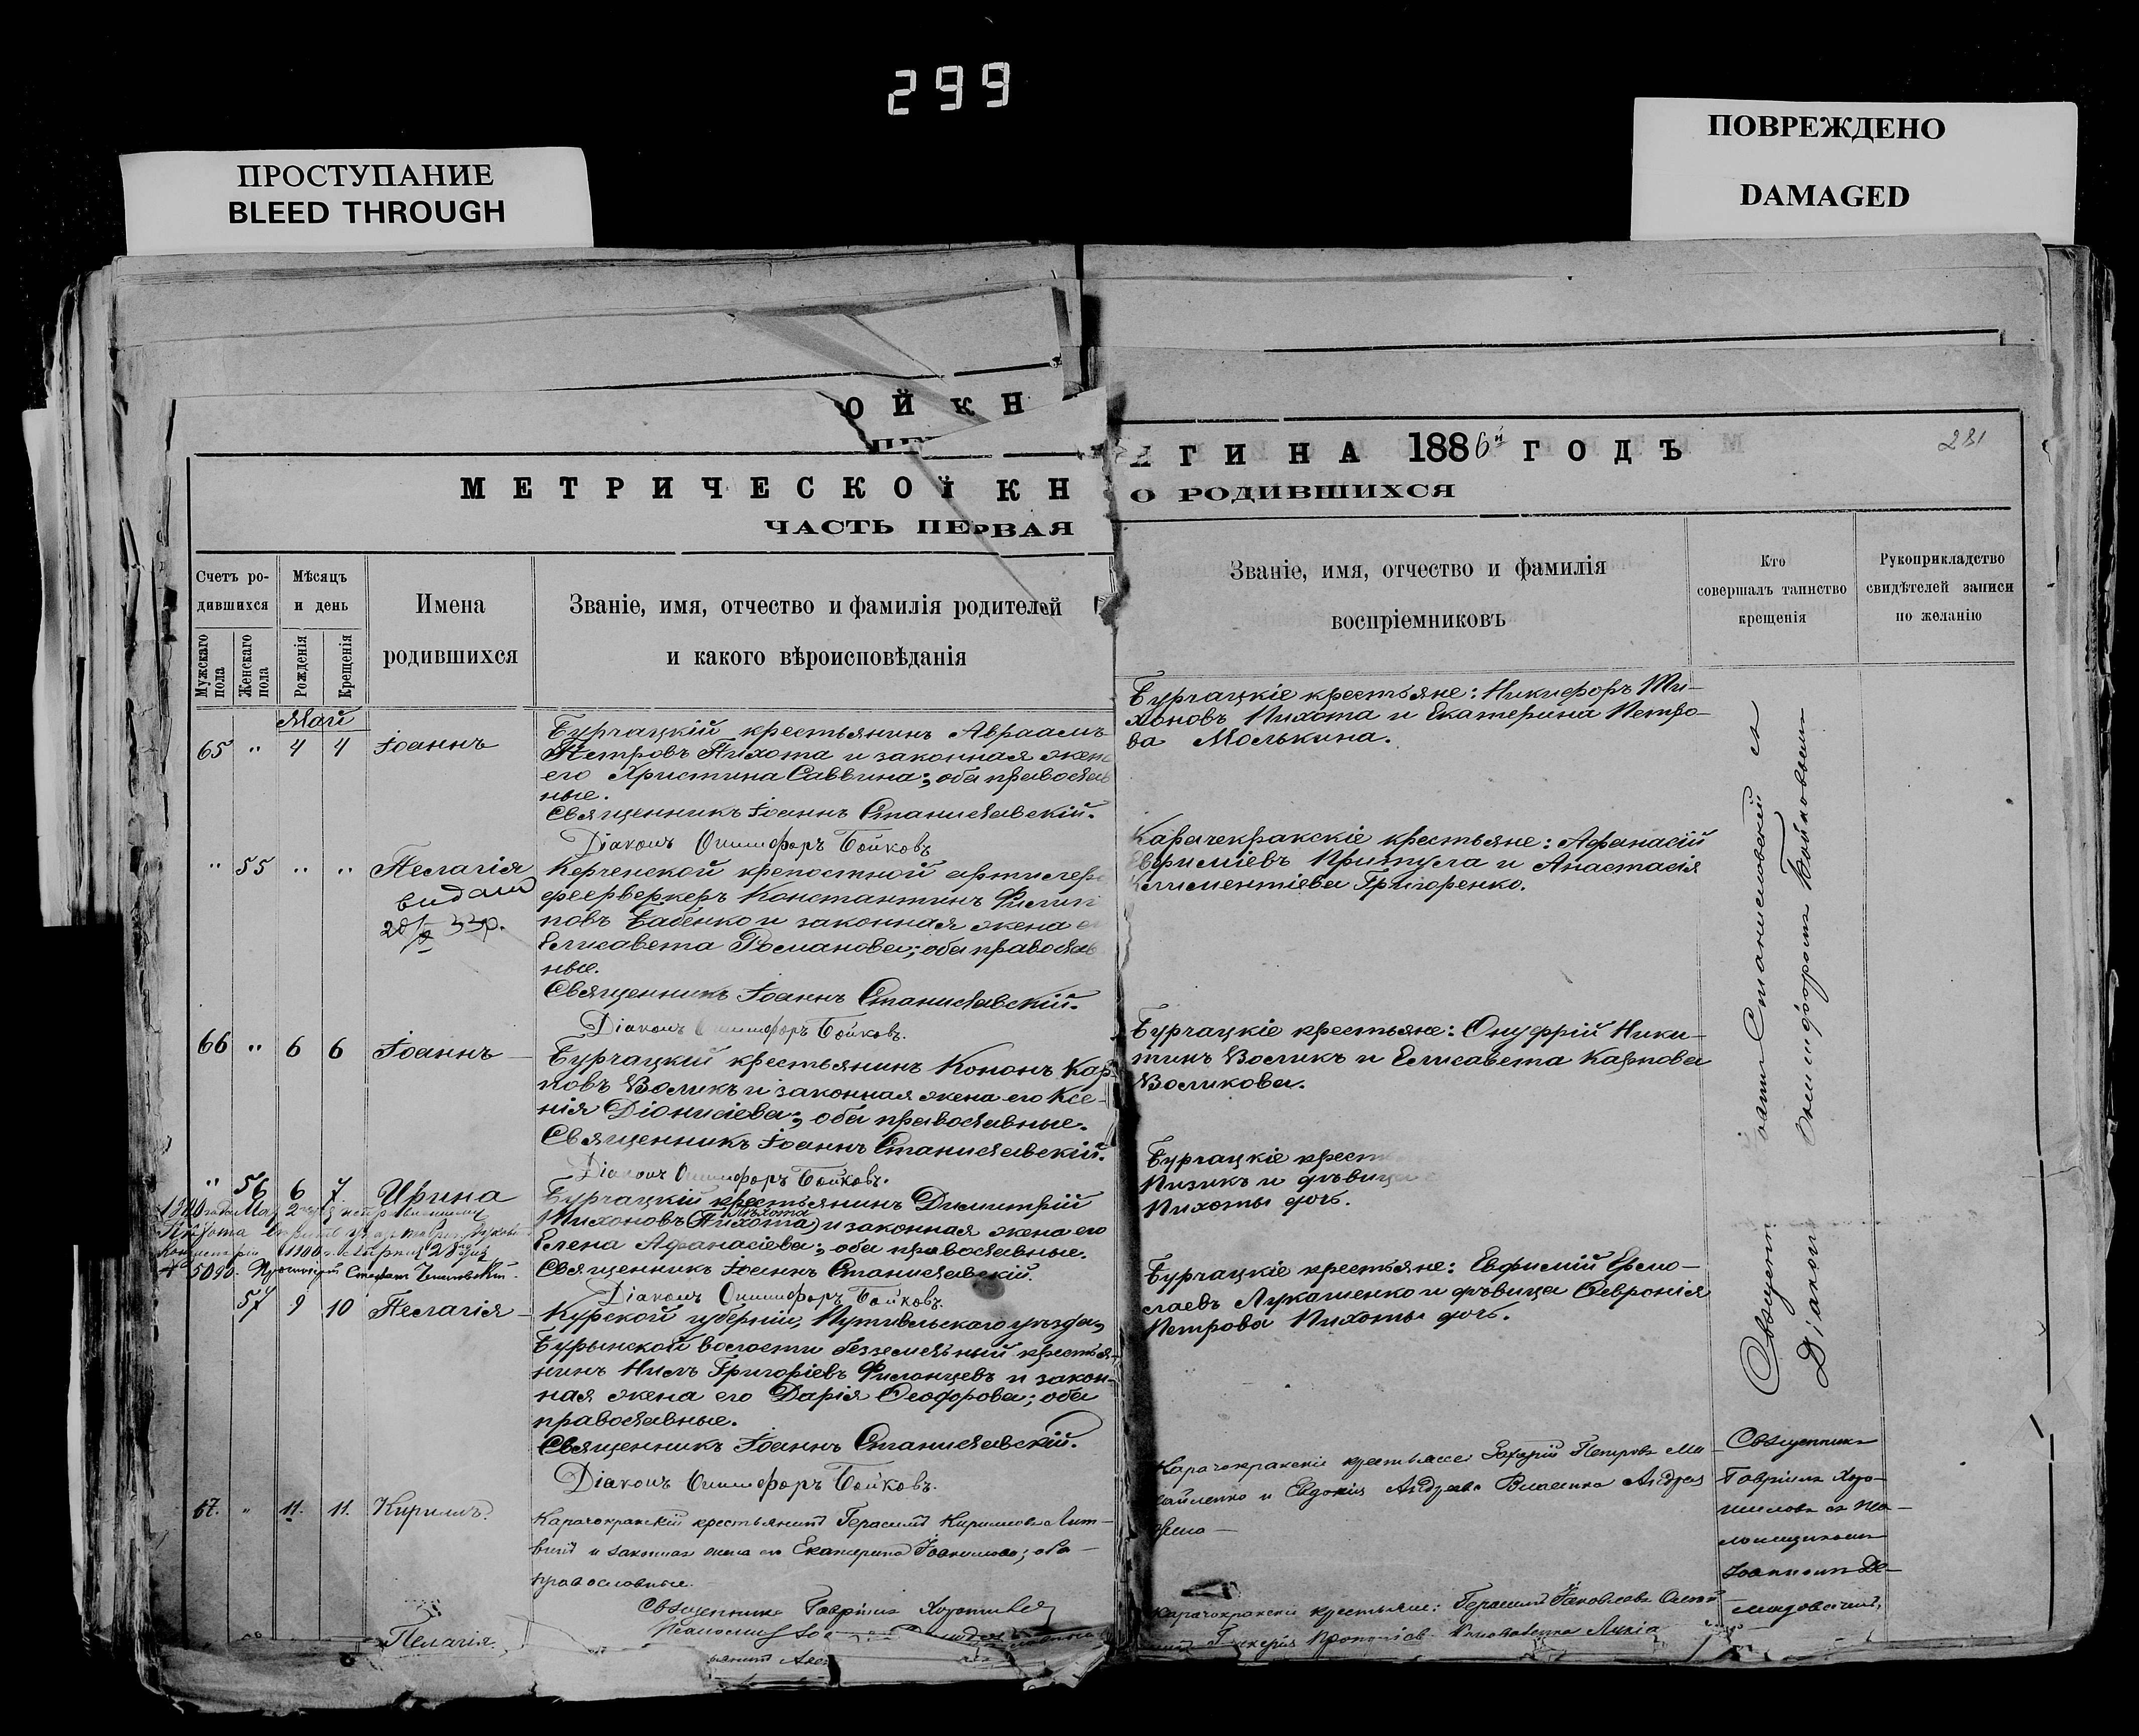 299
ПРОСТУПАНИЕ
BLEED THROUGH
ПОВРЕЖДЕНО
DAMAGED
ОЙ КН
МЕТРИЧЕСКОЙ КН
ЧАСТЬ ПЕРВАЯ
ГИ НА 1886й ГОДЪ
281
О РОДИВШИХСЯ
Счетъ ро-
дившихся
Мужскаго пола
Женскаго пола
Мѣсяцъ
и день
Рожденія
Крещенія
Имена
родившихся
Званіе, имя, отчество и фамилія родителей
и какого вѣроисповѣданія
Званіе, имя, отчество и фамилія
воспріемниковъ
Кто
совершалъ таинство
крещенія
Рукоприкладство
свидѣтелей записи
по желанію
Май
65 " 4 4 Іоаннъ
Бурчацкій крестьянинъ Авраамъ
Петровъ Пихота и законная жен
его Христина Саввина; оба православ
ные.
Священникъ Іоаннъ Станиславскій.
Діаконъ Онисифоръ Бойковъ
Бурчацкіе крестьяне: Никифоръ Ти-
хоновъ Пихота и Екатерина Петро-
ва Молькина.
" 55 " " Пелагія
видано
33р.
Керченской крепостной артилері
феерверкеръ Константинъ Филип
повъ Бабенко и законная жена е
Елисавета Романова; оба православ
ные.
Священникъ Іоаннъ Станиславскій.
Діаконъ Онисифоръ Бойковъ.
Карачекракскіе крестьяне: Афанасій
Евфиміевъ Притула и Анастасія
Климентіева Григоренко.
66 " 6 6 Іоаннъ
Бурчацкій крестьянинъ Кононъ Кар-
повъ Воликъ и законная жена его Ксе-
нія Діонисіева; оба православные.
Священникъ Іоаннъ Станиславскій.
Діаконъ Онисифоръ Бойковъ.
Бурчацкіе крестьяне: Онуфрій Ники-
тинъ Воликъ и Елисавета Карпова
Воликова.
" 56 6 7 Ирина
1900 года Мая
Пѣхота
1900 г.
№ 5090. Протоіерей Стефанъ
Бурчацкій крестьянинъ Димитрій
Тихоновъ (Пихота) и законная жена его
Пѣхота
Елена Афанасіева; оба православные.
Священникъ Іоаннъ Станиславскій.
Діаконъ Онисифоръ Бойковъ.
Бурчацкіе крест
Пизикъ и дѣвица
Пихоты дочь.
57 9 10 Пелагія
Курской губерніи, Путивльскаго уѣзда,
Бурынской волости безземельный крестья-
нинъ Нилъ Григоріевъ Филонцевъ и закон-
ная жена его Дарія Ѳеодорова; оба
православные.
Священникъ Іоаннъ Станиславскій.
Діаконъ Онисифоръ Бойковъ.
Бурчацкіе крестьяне: Евфимій Ермо-
лаевъ Лукашенко и дѣвица Ѳевронія
Петрова Пихоты дочь.
Священ Іоанн Станиславскій съ
Діаконом Онисифором Бойковым
67. " 11. 11. Кириллъ
Карачокракскій крестьянинъ Герасимъ Кирилловъ Лит-
винъ и законная жена его Екатерина Іоакимова; оба
православные.
Священникъ Гавріилъ
Карачокракскіе крестьяне: Захарій Петровъ Ми
хайленко и Евдокія Андреева Власенко Андрея
Священникъ
Гавріилъ Хоро-
шиловъ съ пса-
ломщикомъ
Іоанномъ
Пелагія.
Карачокракскіе крестьяне: Герасимъ Яковлевъ